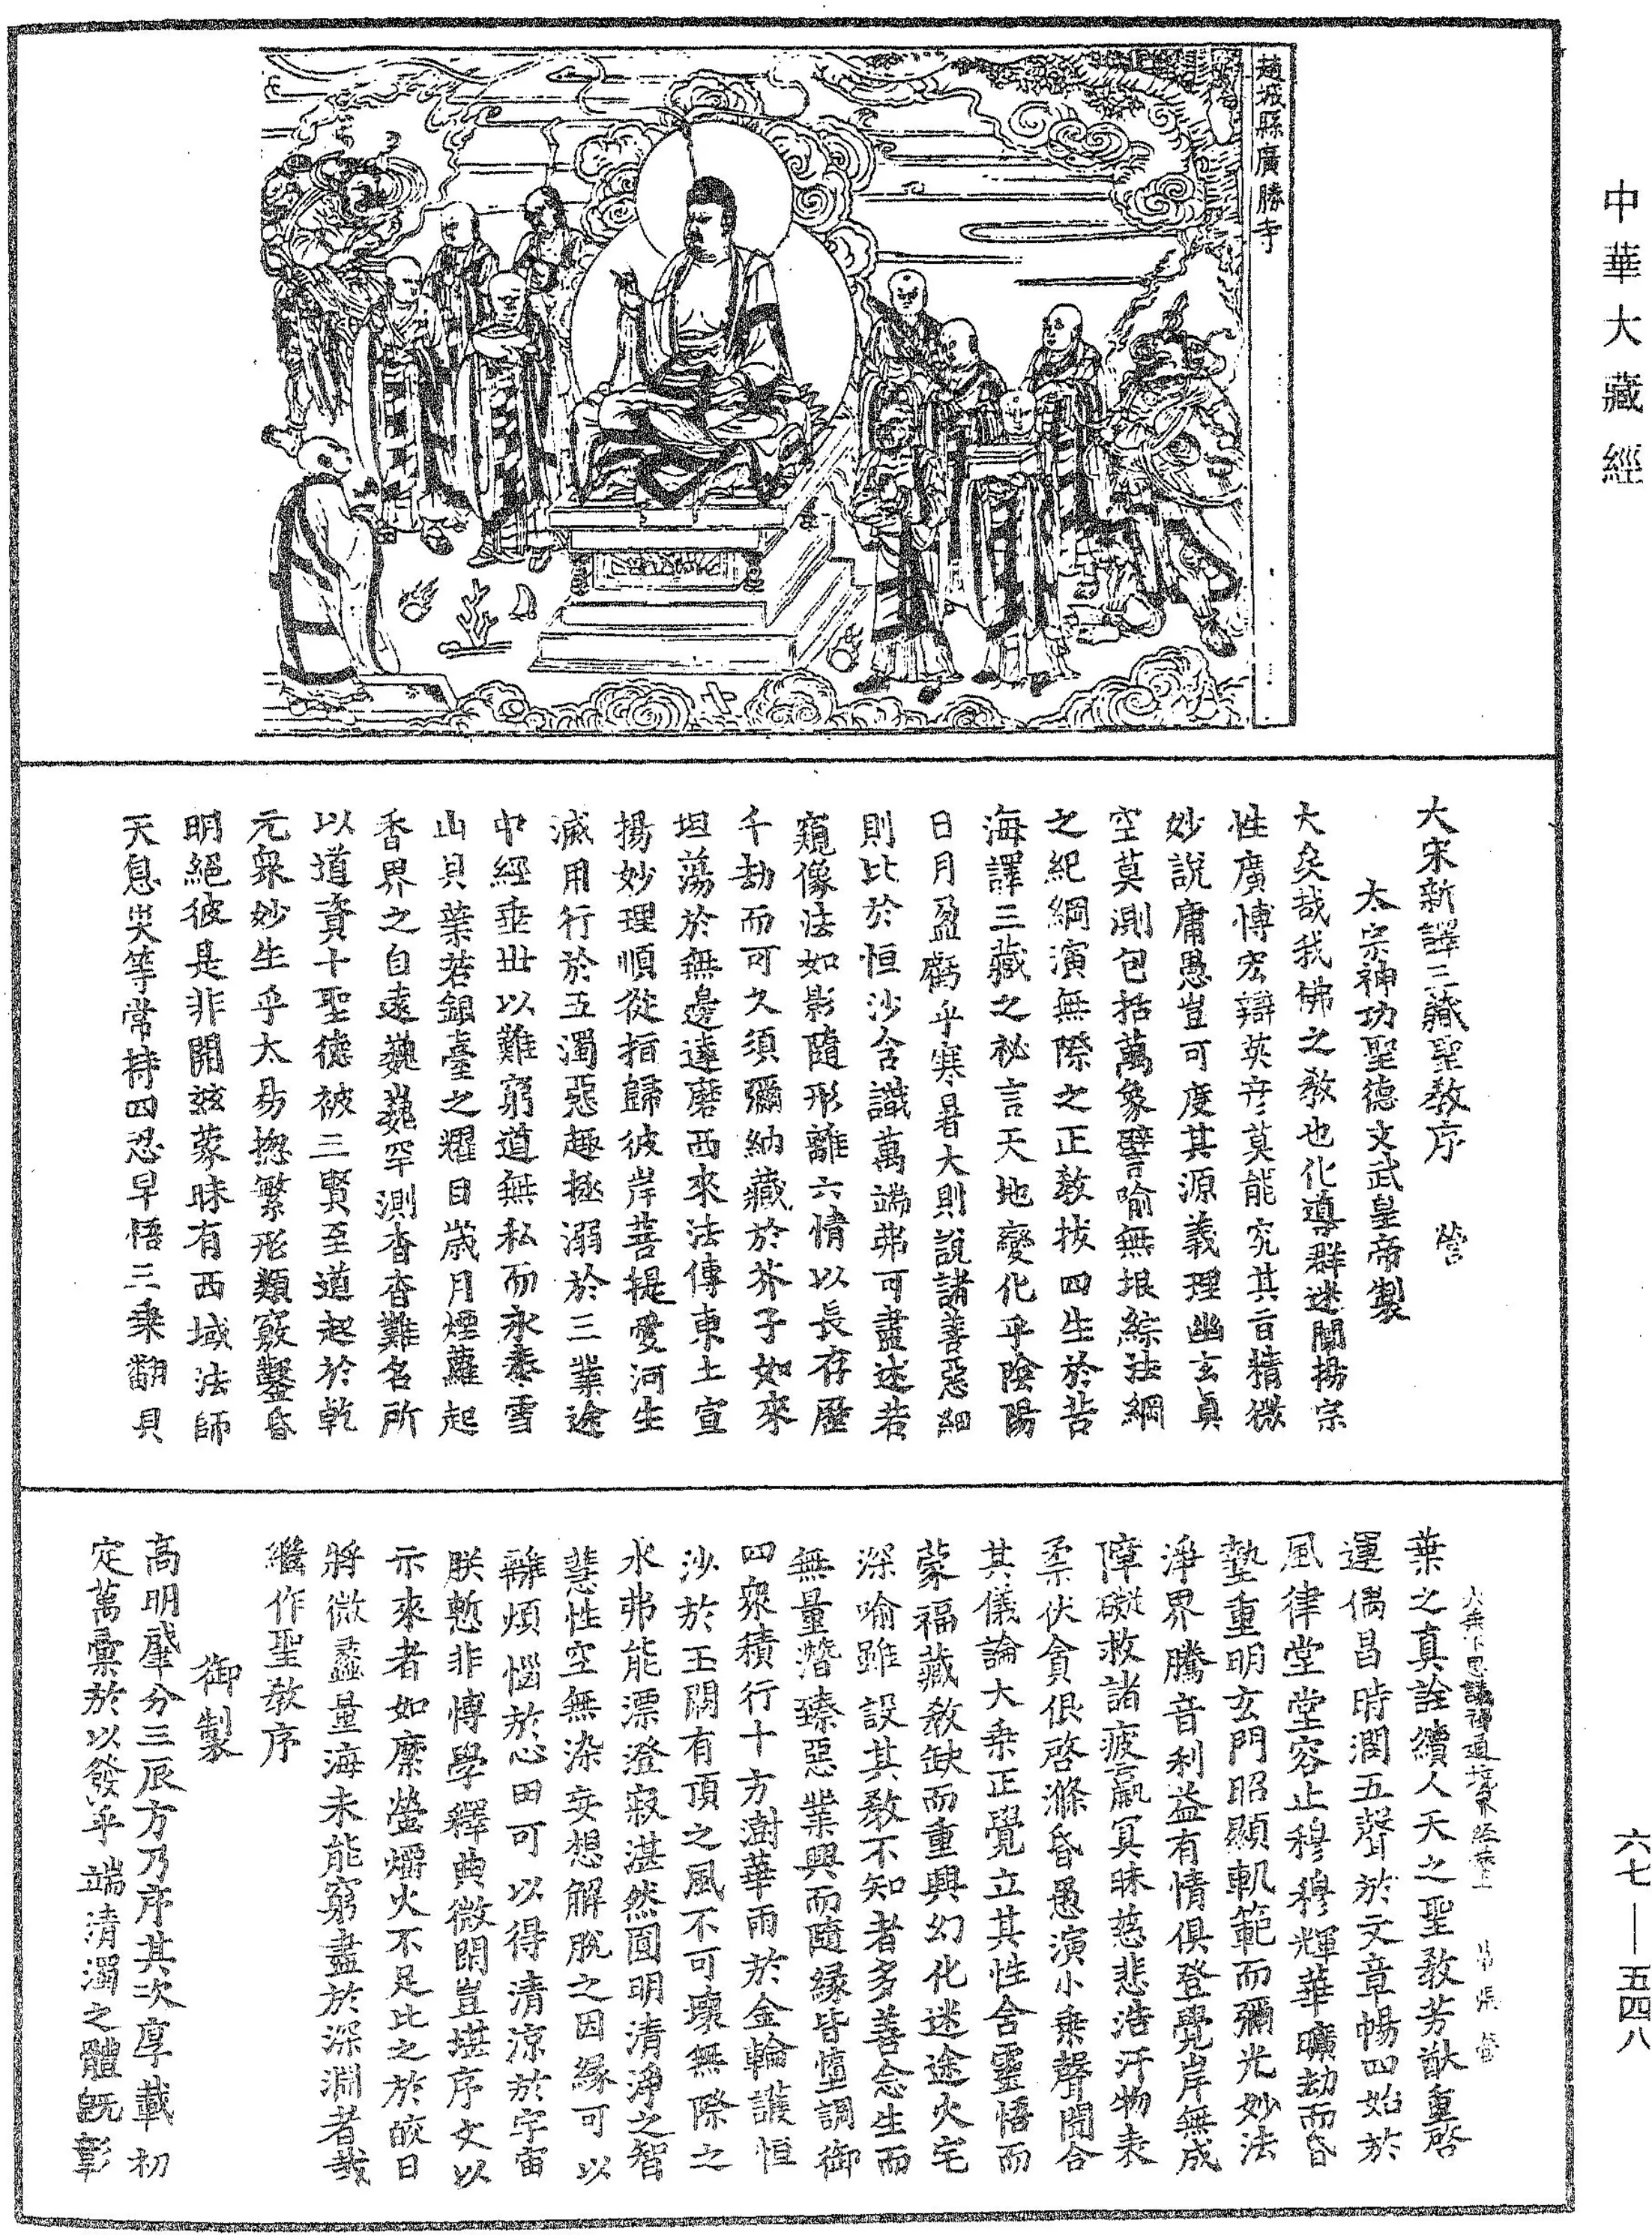 中華大藏經
趙城縣廣勝寺
大宋新譯三藏聖教序 營
太宗神功聖德文武皇帝製
大矣哉我佛之教也化導群迷闡揚宗
性廣博宏辯英彦莫能究其旨精微
妙說庸愚豈可度其源義理幽玄真
空莫測包括萬象譬喻無垠綜法網
之紀綱演無際之正教拔四生於苦
海譯三藏之祕言天地變化乎陰陽
日月盈虧乎寒暑大則說諸善惡細
則比於恒沙含識萬端弗可盡述若
窺像法如影隨形離六情以長存歷
千劫而可久須彌納藏於芥子如來
坦蕩於無邊達磨西來法傳東土宣
揚妙理順從指歸彼岸菩提愛河生
滅用行於五濁惡趣拯溺於三業途
中經垂世以難窮道無私而永泰雪
山貝葉若銀臺之耀日歲月煙蘿起
香界之自遠巍巍罕測杳杳難名所
以道資十聖德被三賢至道起於乾
元衆妙生乎太易揔繁形類竅鑿昏
明絕彼是非開茲蒙昧有西域法師
天息災等常持四忍早悟三乘翻貝
大乘不思議神通境界經卷上 營
葉之真詮續人天之聖教芳猷重啓
運偶昌時潤五聲於文章暢四始於
風律堂堂容止穆穆輝華曠劫而昏
墊重明玄門昭顯軌範而彌光妙法
淨界騰音利益有情俱登覺岸無成
障礙救諸疲羸冥昧慈悲浩汗物表
柔伏貪很啓滌昏愚演小乘聲聞合
其儀論大乘正覺立其性含靈悟而
蒙福藏教缺而重興幻化迷途火宅
深喻雖設其教不知者多善念生而
無量潛臻惡業興而隨緣皆墮調御
四衆積行十方澍華雨於金輪護恒
沙於玉闕有頂之風不可壞無際之
水弗能漂澄寂湛然圓明清淨之智
慧性空無染妄想解脫之因緣可以
離煩惱於心田可以得清涼於宇宙
朕慙非博學釋典微閑豈堪序文以
示來者如縻螢爝火不足比之於皎日
將微蠡量海未能窮盡於深淵者哉
繼作聖教序
御製
高明肇分三辰方乃序其次厚載初
定萬彙於以發乎端清濁之體旣彰
六七—五四八